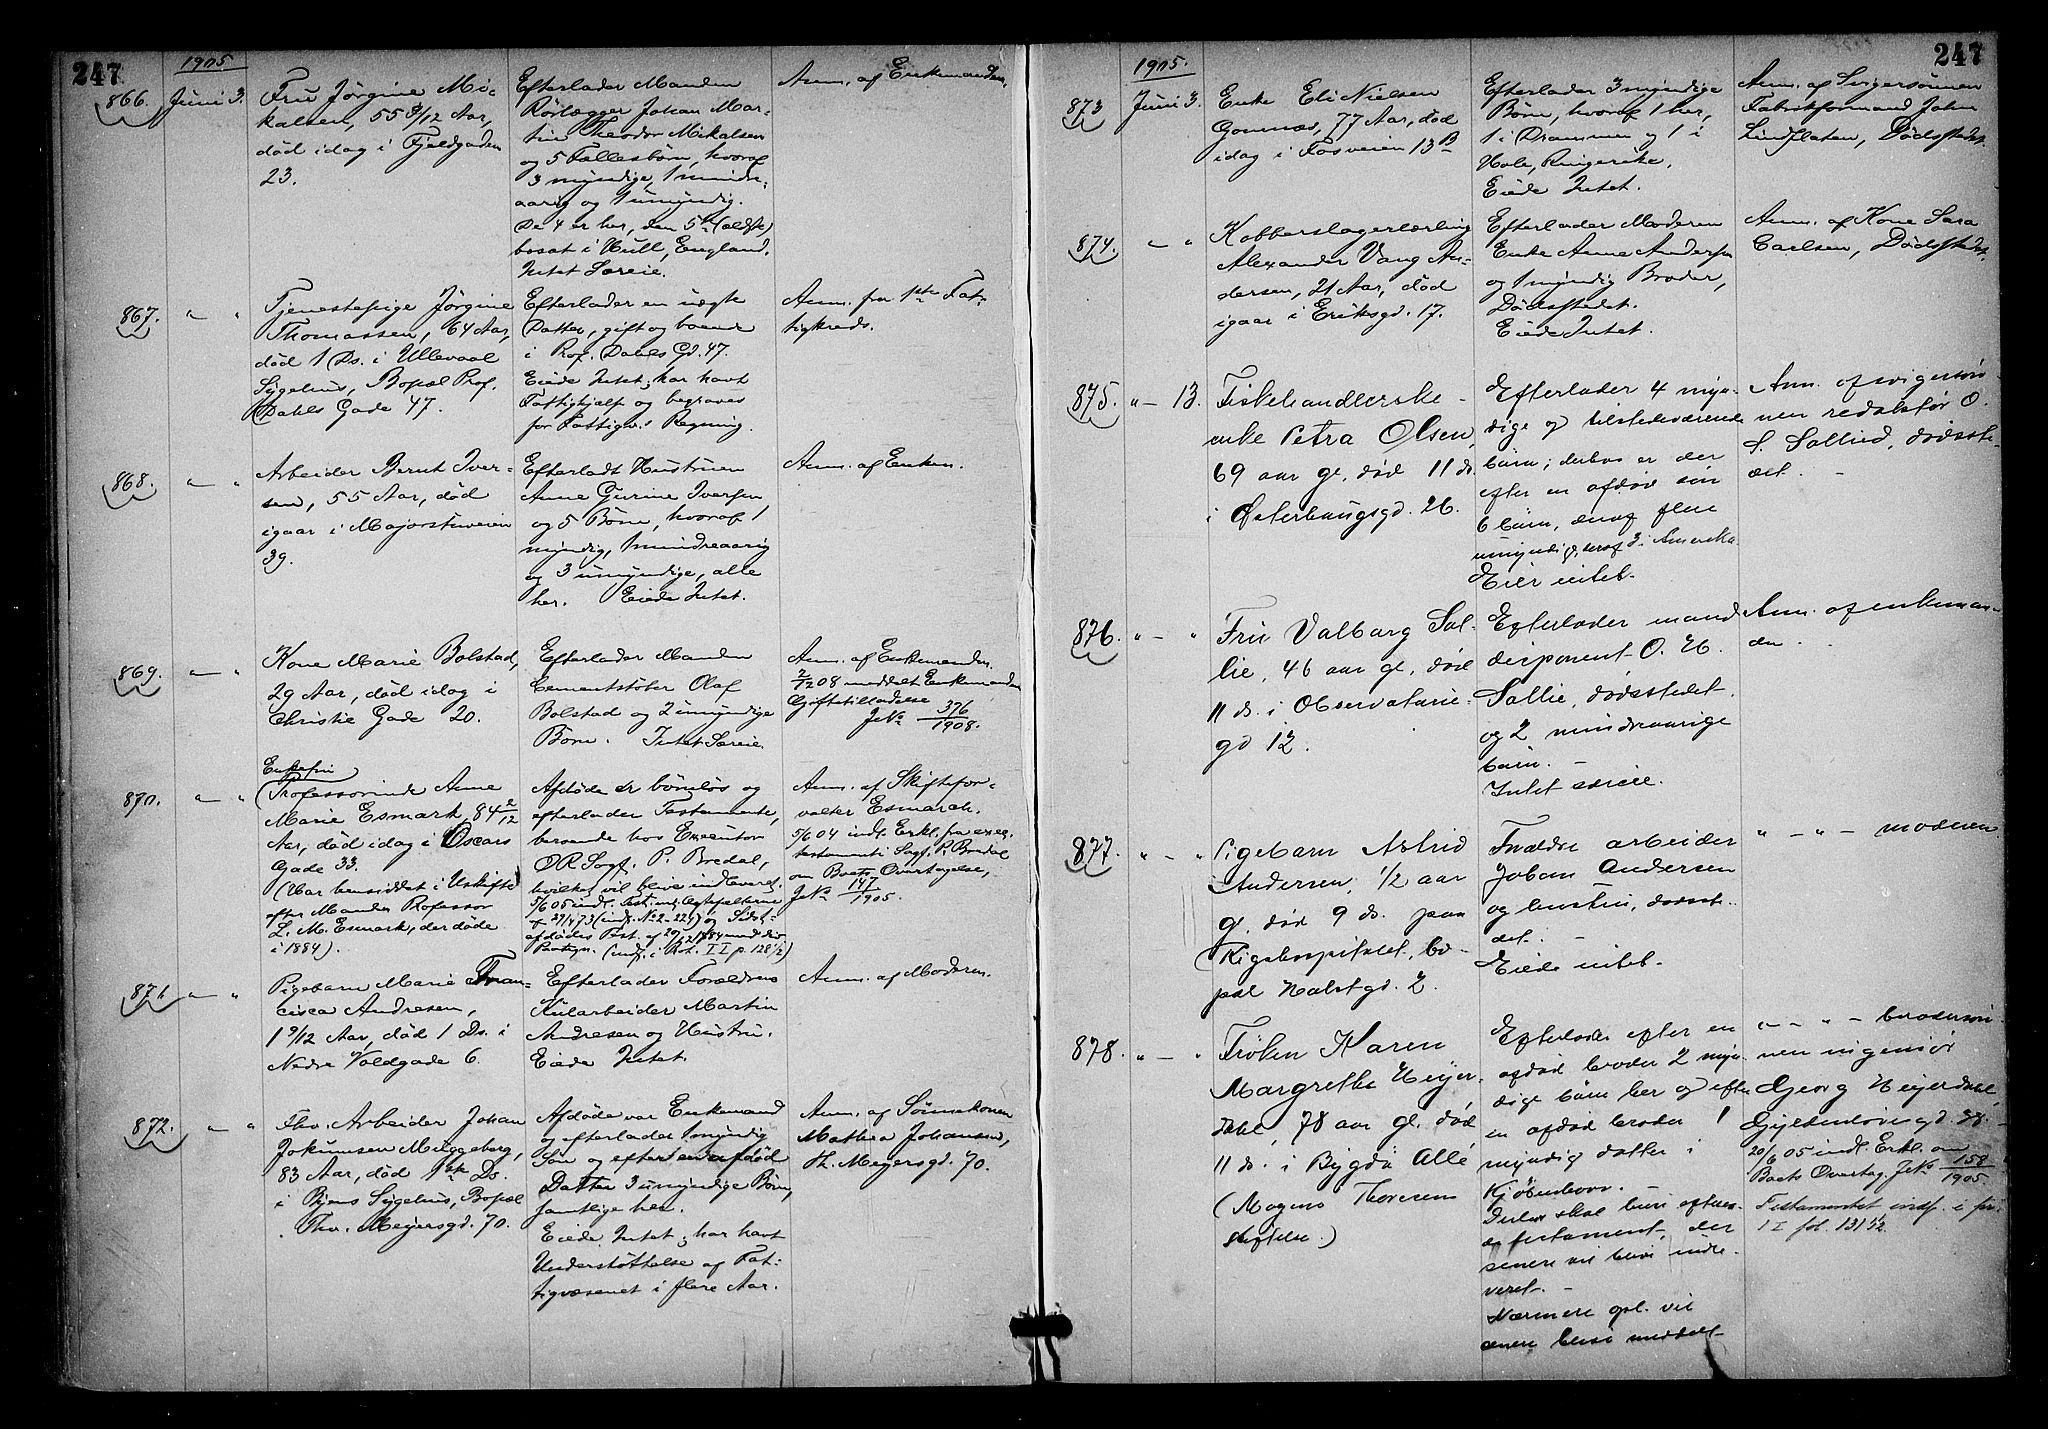 247
1905
866.
Juni 3.
Fru Jørgine Mi-
kalsen, 55 8/12 Aar,
død idag i Fjeldgaden
23.
Efterlader Manden
Rørlægger Johan Mar-
tin Theodor Mikalsen
og 5 Fællesbørn, hvoraf
3 myndige, 1 mindre-
aarig og 1 umyndig.
De 4 er her, den 5te (ældste)
bosat i Hull, England.
Intet Særeie.
Anm. af Enkemanden.
867.
" — "
Tjenestepige Jørgine
Thomassen, 64 Aar,
død 1 Ds. i Ullevaal
Sygehus, Bopæl Prof.
Dahls Gade 47.
Efterlader en uægte
Datter, gift og boende
i Prof. Dahls Gd. 47.
Eiede Intet; har havt
Fattighjælp og begraves
for Fattigv.s Regning.
Anm. fra 1ste Fat-
tigkreds.
868.
" — "
Arbeider Bernt Iver-
sen, 55 Aar, død
igaar i Majorstuveien
39.
Efterladt Hustruen
Anne Gurine Iversen
og 5 Børn, hvoraf 1
myndig, 1 mindreaarig
og 3 umyndige, alle
her. Eiede Intet.
Anm. af Enken.
869.
" — "
Kone Marie Bolstad,
29 Aar, død idag i
Christie Gade 20.
Efterlader Manden
Cementstøber Olaf
Bolstad og 2 umyndige
Børn. Intet Særeie.
Anm. af Enkemanden.
2/12 08 meddelt Enkemanden
Giftetilladelse
J.No 376/1908.
870.
" — "
Enkefru
Professorinde Anne
Marie Esmark, 84 2/12
Aar, død idag i Oscars
Gade 33.
(Har hensiddet i Uskifte
efter Manden Professor
L. M. Esmark, der døde
i 1884).
Afdøde er børnløs og
efterlader Testamente,
beroende hos Executor
OR Sagf. P. Bredal,
hvilket vil blive indleveret.
5/6 05 indl. Test. ml. Ægtefællerne
af 29/4 73 (indf. No 2 - 224) og Sidst-
afdødes Test. af 29/12 1884 med div
Paategn. (indf. i Prot. II p. 128 1/2)
Anm. af Skiftefor-
valter Esmarch.
5/6 04 indl. Erkl. fra exec.
testamenti Sagf. P. Bredal
om Boets Overtagelse,
J.No 147/1905.
871
" — "
Pigebarn Marie Fran-
cisca Andresen,
1 9/12 Aar, død 1 Ds. i
Nedre Voldgade 6.
Efterlader Forældrene
Kularbeider Martin
Andresen og Hustru.
Eiede Intet.
Anm. af Moderen.
872.
" — "
Fhv. Arbeider Johan
Jokumsen Muggeberg,
83 Aar, død 1ste Ds.
i Byens Sygehus, Bopæl
Thv. Meyersgd. 70.
Afdøde var Enkemand
og efterlader 1 myndig
Søn og efter en afdød
Datter 3 umyndige Børn,
samtlige her.
Eiede Intet; har havt
Understøttelse af Fat-
tigvæsenet i flere Aar.
Anm. af Sønnekonen
Mathea Johansen,
Th. Meyersgd. 70.
247
1905.
873
Juni 3.
Enke Eli Nielsen
Gomnæs, 77 Aar, død
idag i Fosveien 13 B
Efterlader 3 myndige
Børn, hvoraf 1 her,
1 i Drammen og 1 i
Hole, Ringerike.
Eiede Intet.
Anm. af Svigersønnen
Fabrikformand Johan
Lindflaten, Dødsstedet.
874.
" — "
Kobberslagerlærling
Alexander Vang An-
dersen, 21 Aar, død
igaar i Eriksgd. 17.
Efterlader Moderen
Enke Anne Andersen
og 1 myndig Broder,
Dødsstedet.
Eiede Intet.
Anm. af Kone Sara
Carlsen, Dødsstedet.
875.
" — 13.
Fiskehandlerske -
enke Petra Olsen,
69 aar gl. død 11 ds.
i Østerhaugsgd. 26.
Efterlader 4 myn-
dige og tilstedeværende
børn; derhos er der
efter en afdød søn
6 børn, deraf flere
umyndige, deraf 3 i Amerika.
Eier intet.
Anm. af svigersøn-
nen redaktør O.
S. Sollied, dødsste-
det.
876.
" — "
Fru Valborg Sol-
lie, 46 aar gl. død
11 ds. i Observatorie-
gd 12.
Efterlader mand
disponent O. H.
Sollie, dødsstedet
og 2 mindreaarige
børn. -
Intet særeie.
Anm. af enkeman-
den.
877.
" — "
Pigebarn Astrid
Andersen, 1/2 aar
gl. død 9 ds. paa
Rigshospitalet, bo-
pæl Holstgd. 2.
Forældre arbeider
Johan Andersen
og hustru, dødsste-
det. -
Eiede intet.
" — " — moderen
878.
" — "
Frøken Karen
Margrethe Heyer-
dahl, 78 aar gl. død
11 ds. i Bygdø Allé
(Mogens Thorsens
stiftelse.)
Efterlader efter en
afdød broder 2 myn-
dige børn her og efter
en afdød broder 1
myndig datter i
Kjøbenhavn.
Derhos skal være efterla-
dt testament, der
senere vil blive indle-
veret. -
Nærmere opl. vil
senere blive meddelt
" — " — brodersøn-
nen ingeniør
Georg Heyerdahl,
Gyldenløvesgd. 38.
20/6 05 indl. Erkl. om
Boets Overtag. J.No 158/1905
Testamentet indf. i prot.
1 I fol. 131 1/2.